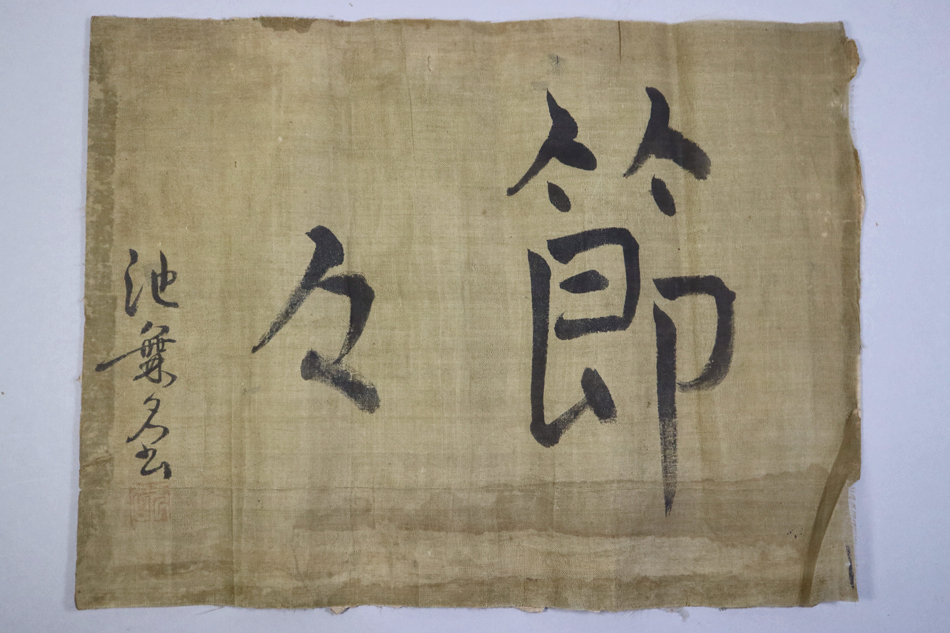 節々
池無名書